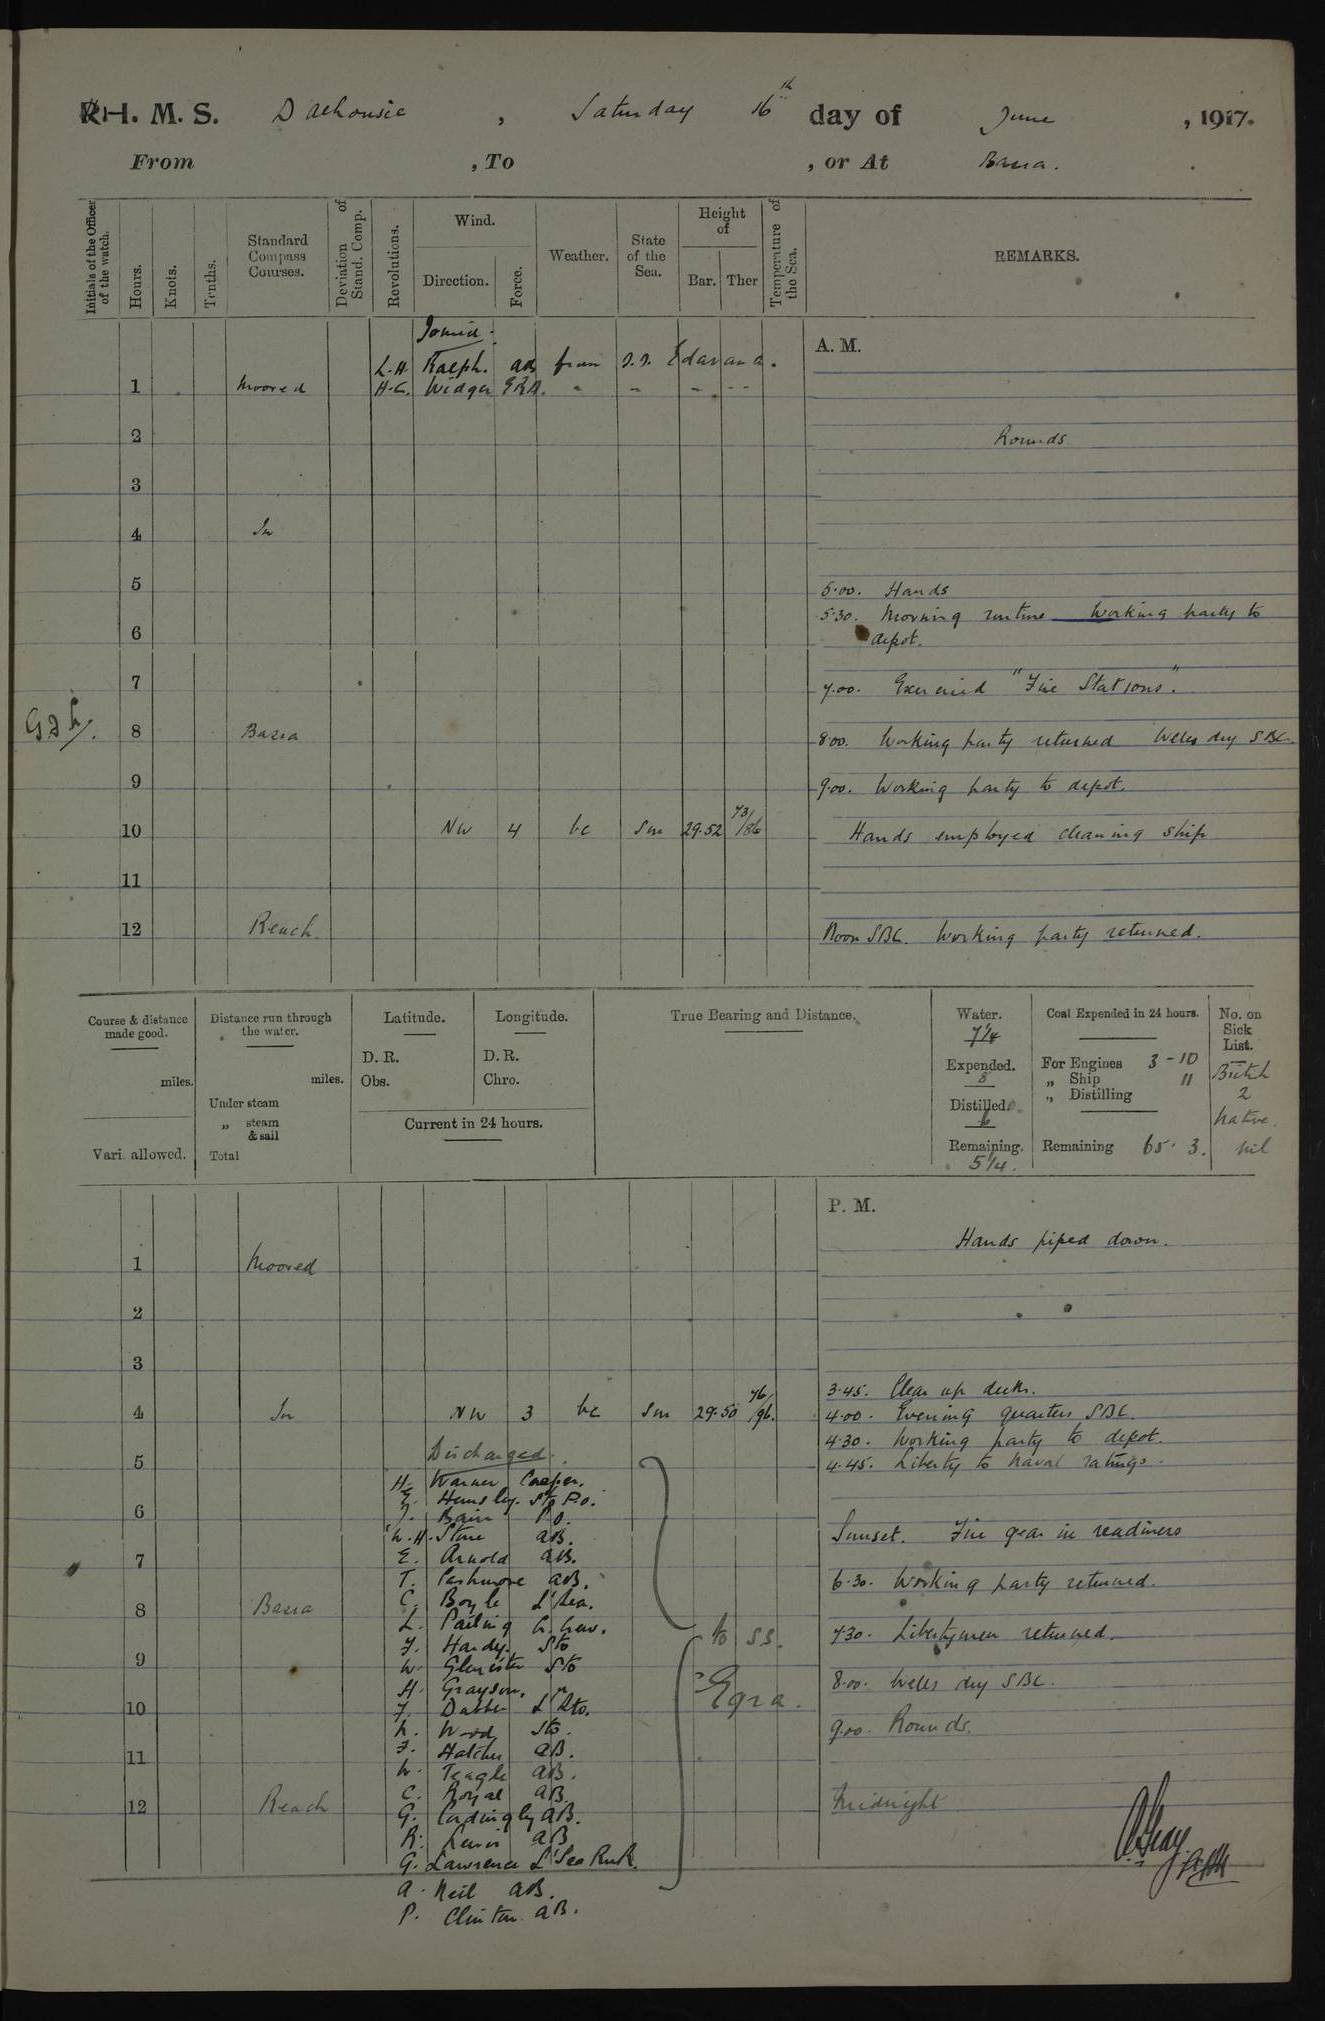 H. M. S. Dalhousie, Saturday 16th day of June, 1917.
From , To , or At Basra.
Initials of the Officer of the watch.
Hours.
Knots.
Tenths.
Standard Compass Courses.
Deviation of Stand. Comp.
Revolutions.
Wind.
Direction.
Force.
Weather.
State of the Sea.
Height of
Bar. Ther
Temperature of the Sea.
REMARKS.
A. M.
Joined.
L.H. Ralph. AB from S.S. Edavana.
H.C. Widger ERA. " " " "
1 Moored
2 Rounds
3
4 In
5 5.00. Hands
5.30. Morning routine Working party to
6 depot.
7 7.00. Exercised "Fire Stations".
8 Basra 8.00. Working party returned Wells dry SBC.
9 9.00. Working party to depot.
10 NW 4 bc Sm 29.52 73/86 Hands employed cleaning ship
11
12 Reach. Noon SBC. Working party returned.
Course & distance made good.
miles.
Vari. allowed.
Distance run through the water.
miles.
Under steam
„ steam & sail
Total
Latitude.
D. R.
Obs.
Longitude.
D. R.
Chro.
Current in 24 hours.
True Bearing and Distance.
Water.
7 1/4
Expended.
8
Distilled.
6
Remaining.
5 1/4.
Coal Expended in 24 hours.
For Engines 3 - 10
„ Ship 11
„ Distilling
Remaining 65. 3.
No. on Sick List.
British
2
Native.
nil
P. M.
Hands piped down.
1 Moored
2
3
3.45. Clear up decks.
4 In NW 3 bc Sm 29.50 76/96. 4.00. Evening quarters SBC.
4.30. Working party to depot.
4.45. Liberty to Naval ratings.
5 Discharged.
H. Warner Cooper.
E. Hemsley. Sto P.O.
J. Bain P.O.
6
W.H. Stone AB.
Sunset. Fire gear in readiness
E. Arnold AB.
7
T. Pashmore AB.
6.30. Working party returned.
C. Boyle L' Sea.
8 Basra
L. Pailing
7.30. Libertymen returned.
J. Hardy. Sto
to S.S. Egra.
9
W. Gloucester Sto
8.00. Wells dry SBC.
H. Grayson. "
10
J. Dubber L' Sto.
9.00. Rounds.
W. Wood Sto.
F. Hatcher AB.
11
W. Teagle AB.
C. Royal AB.
12 Reach Midnight
G. Cordingley AB.
R. Lewis AB
G. Lawrence L' Sea RNR.
A. Neil AB.
P. Clinton AB.